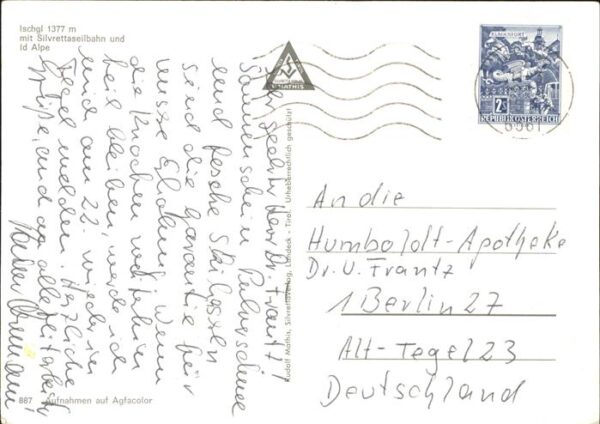 Ischgl 1377 m
mit Silvrettaseilbahn und
Id Alpe
Sehr geehrter Herr Dr. Frantz!
Sonnenschein Pulverschnee
und fesche Skihasen
sind die Garantie für
unsere Erholung! Wenn
die Knochen weiterhin
heil bleiben, werde ich
mich am 22. wieder in
Tegel melden. Herzliche
Grüße, auch an alle Mitarbeiter
887 Aufnahmen auf Agfacolor
R. MATHIS
Rudolf Mathis, Silvrettaverlag, Landeck - Tirol. Urheberrechtlich geschützt
KLAGENFURT
2 S
REPUBLIK ÖSTERREICH
6561
An die
Humboldt-Apotheke
Dr. U. Frantz
1 Berlin 27
Alt-Tegel 23
Deutschland